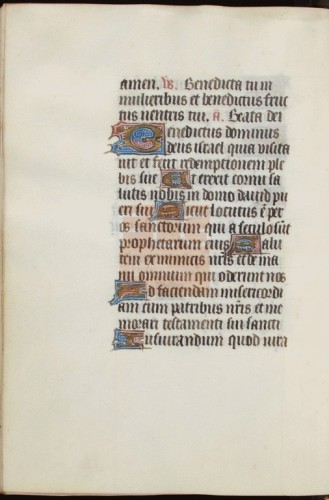 amen. vs. Benedicta tu in
mulieribus et benedictus fruc
tus uentris tui. a. Beata dei
Benedictus dominus
deus israel quia visita
uit et fecit redemptionem ple
bis sue Et erexit cornu sa
lutis nobis in domo dauid pu
eri sui Sicut locutus e per
os sanctorum qui a seculo sūt
prophetarum eius Salu
tem ex inimicis nr̄is et de ma
nu omnium qui oderunt nos
Ad faciendam misericordi
am cum patribus nr̄is et me
morari testamenti sui sancti
Iusiurandum quod iura